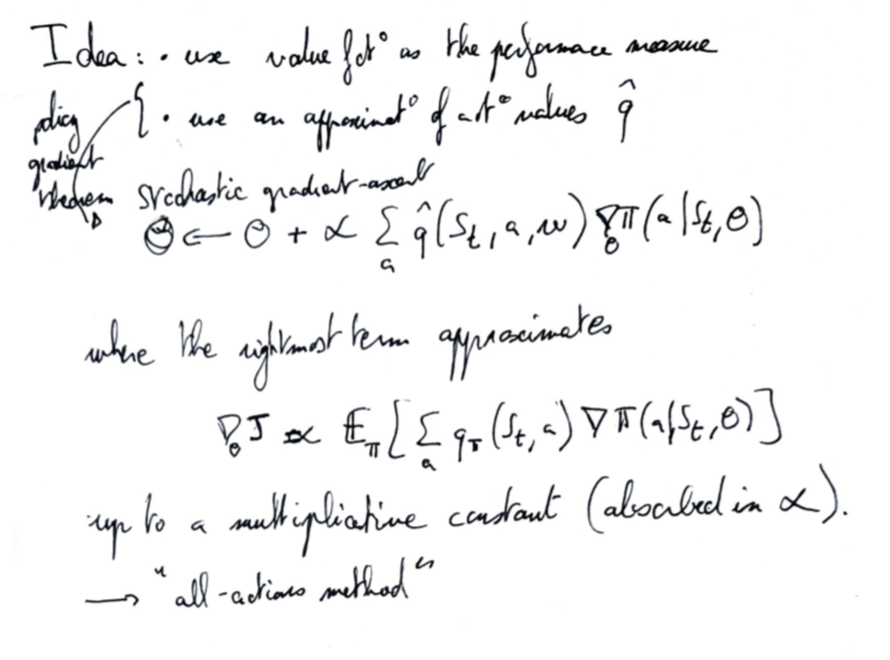 Idea: • use value fct° as the performance measure
policy gradient theorem { • use an approximat° of act° values q̂
stochastic gradient-ascent
θ ← θ + α ∑_a q̂(S_t, a, w) ∇_θ π(a|S_t, θ)
where the rightmost term approximates
∇_θ J ∝ 𝔼_π[∑_a q_π(S_t, a) ∇π(a|S_t, θ)]
up to a multiplicative constant (absorbed in α).
→ "all-actions method"